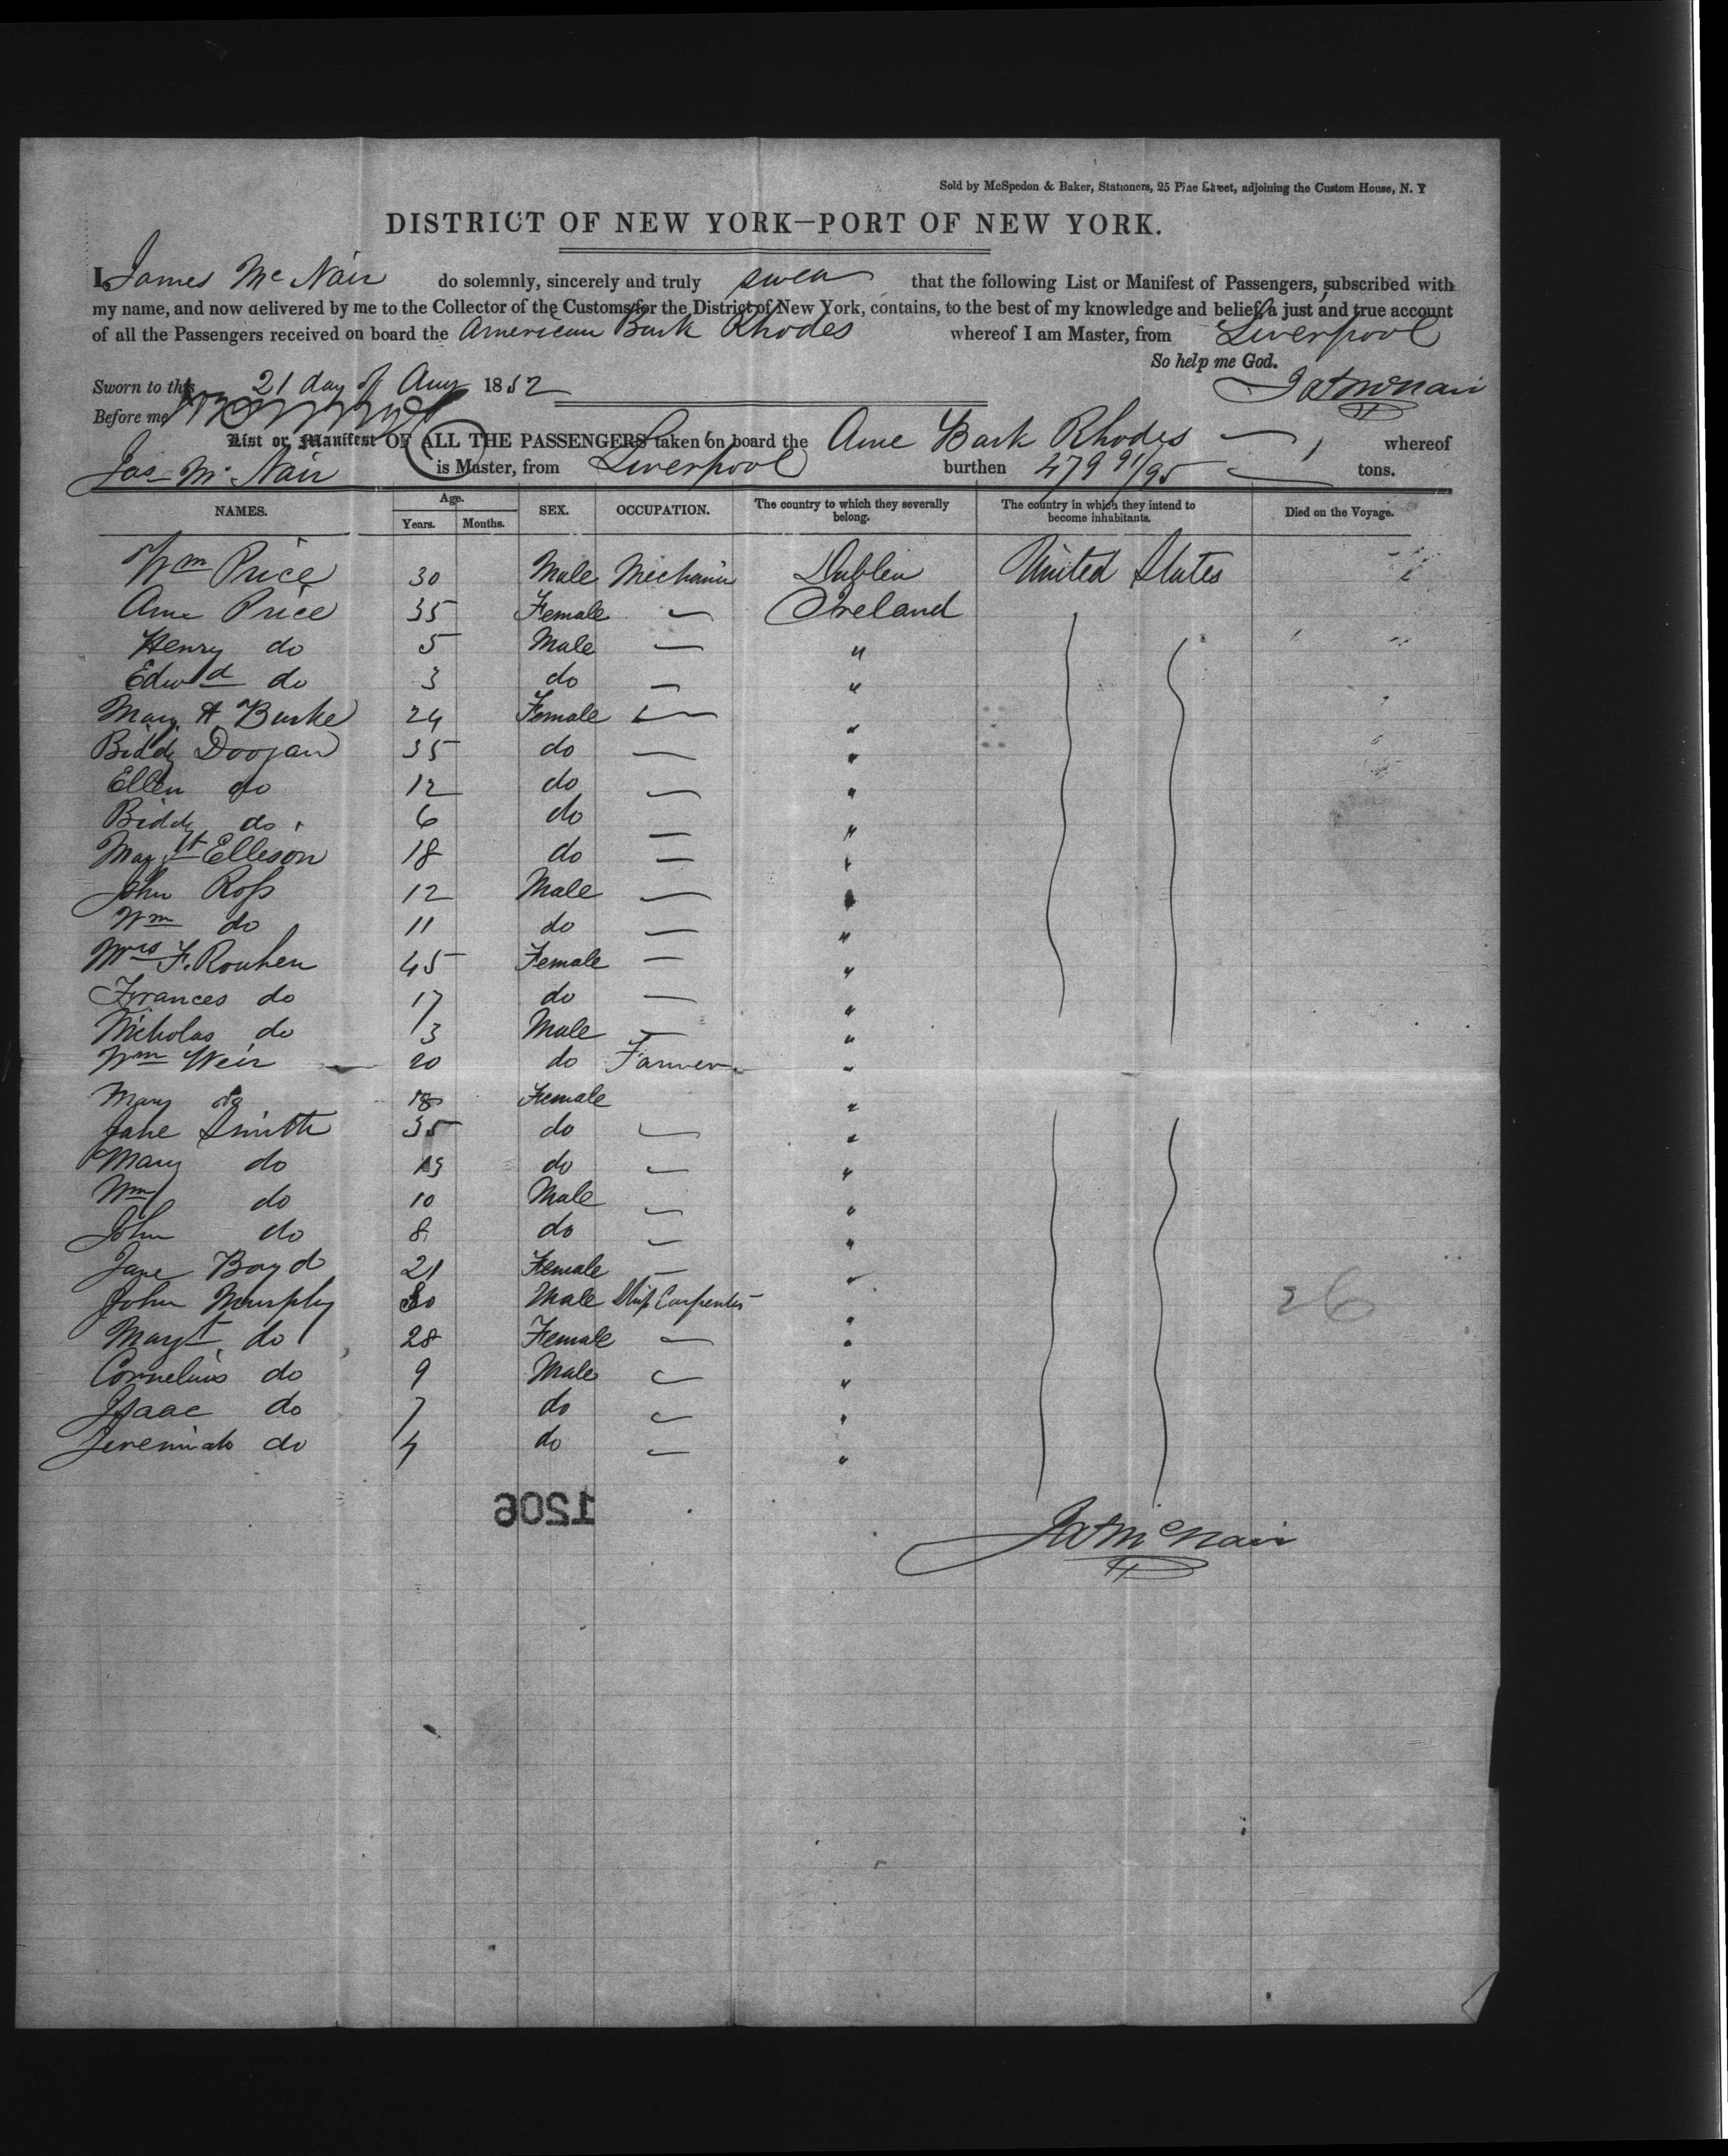 Sold by McSpedon & Baker, Stationers, 25 Pine Street, adjoining the Custom House, N. Y
DISTRICT OF NEW YORK—PORT OF NEW YORK.
I, James Mc Nair do solemnly, sincerely and truly swear that the following List or Manifest of Passengers, subscribed with
my name, and now delivered by me to the Collector of the Customs for the District of New York, contains, to the best of my knowledge and belief, a just and true account
of all the Passengers received on board the American Bark Rhodes whereof I am Master, from Liverpool
So help me God.
Sworn to this 21 day of Aug 1852 Jas McNair
Before me
List or Manifest OF ALL THE PASSENGERS taken on board the Ame Bark Rhodes whereof
Jas Mc Nair is Master, from Liverpool burthen 479 91/95 tons.
NAMES. Age. Years. Months. SEX. OCCUPATION. The country to which they severally belong. The country in which they intend to become inhabitants. Died on the Voyage.
Wm Price 30 Male Mechanic Dublin United States
Ann Price 35 Female — Ireland
Henry do 5 Male — "
Edwd do 3 do — "
Mary A Burke 24 Female — "
Biddy Doogan 35 do — "
Ellen do 12 do — "
Biddy do 6 do — "
Margt Elleson 18 do — "
John Ross 12 Male — "
Wm do 11 do — "
Mrs F. Rouhen 45 Female — "
Frances do 17 do — "
Nicholas do 13 Male — "
Wm Weir 20 do Farmer "
Mary do 18 Female "
Jane Smith 35 do — "
Mary do 13 do — "
Wm do 10 Male — "
John do 8 do — "
Jane Boyd 21 Female — "
John Murphy 30 Male Ship Carpenter "
Margt do 28 Female — "
Cornelius do 9 Male — "
Isaac do 7 do — "
Jeremiah do 4 do — "
26
1206
Jas McNair